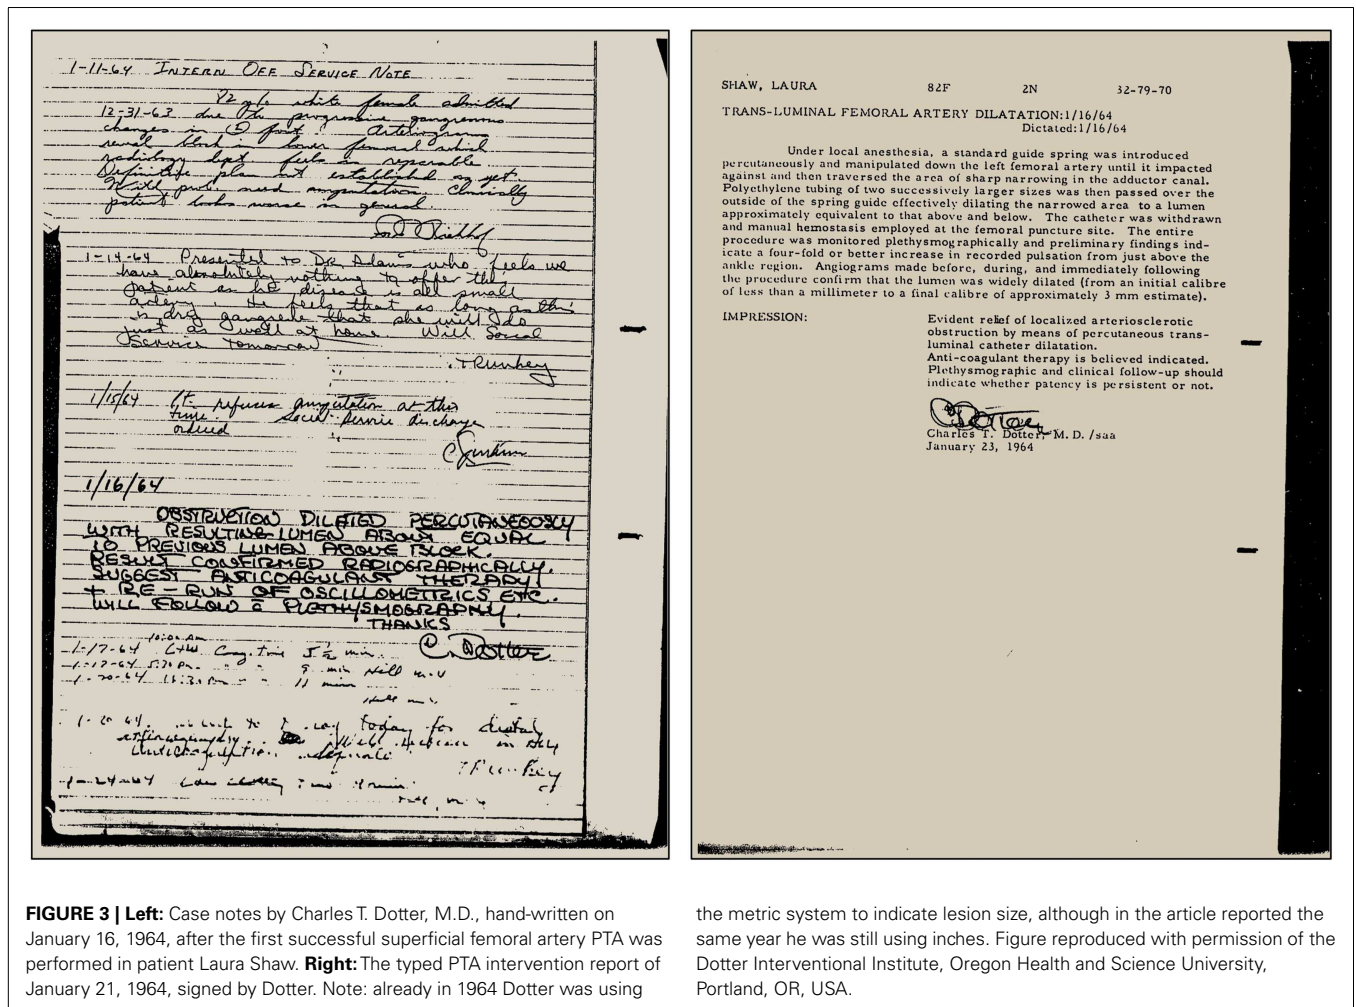 1-11-64 INTERN OFF SERVICE NOTE
82 y/o white female admitted
12-31-63 due to progressive gangrenous
changes in L foot. Arteriograms
reveal block in lower femoral which
radiology dept. feels is reparable
Definitive plan not established as yet.
Will prob. need amputation. Clinically
patient looks worse in general.
1-14-64 Presented to Dr. Adams who feels we
have absolutely nothing to offer this
patient as her disease is all small
artery. He feels that as long as this
is dry gangrene that she will do
just as well at home. Will Social
Service tomorrow
1/15/64 Pt. refuses amputation at this
time. Social Service discharge
ordered
1/16/64
OBSTRUCTION DILATED PERCUTANEOUSLY
WITH RESULTING LUMEN ABOUT EQUAL
TO PREVIOUS LUMEN ABOVE BLOCK.
RESULT CONFIRMED RADIOGRAPHICALLY.
SUGGEST ANTICOAGULANT THERAPY
+ RE-RUN OF OSCILLOMETRICS ETC.
WILL FOLLOW c̄ PLETHYSMOGRAPHY.
THANKS
C. Dotter
10:00 AM
1-17-64 L+W Coag. time 5 1/2 min.
1-17-64 5:30 Pm. " " " 9 min Hill M.D
1-20-64 " " 11 min
1-20-64 to today for
1-24-64
SHAW, LAURA 82F 2N 32-79-70
TRANS-LUMINAL FEMORAL ARTERY DILATATION:1/16/64
Dictated:1/16/64
Under local anesthesia, a standard guide spring was introduced
percutaneously and manipulated down the left femoral artery until it impacted
against and then traversed the area of sharp narrowing in the adductor canal.
Polyethylene tubing of two successively larger sizes was then passed over the
outside of the spring guide effectively dilating the narrowed area to a lumen
approximately equivalent to that above and below. The catheter was withdrawn
and manual hemostasis employed at the femoral puncture site. The entire
procedure was monitored plethysmographically and preliminary findings ind-
icate a four-fold or better increase in recorded pulsation from just above the
ankle region. Angiograms made before, during, and immediately following
the procedure confirm that the lumen was widely dilated (from an initial calibre
of less than a millimeter to a final calibre of approximately 3 mm estimate).
IMPRESSION: Evident relief of localized arteriosclerotic
obstruction by means of percutaneous trans-
luminal catheter dilatation.
Anti-coagulant therapy is believed indicated.
Plethysmographic and clinical follow-up should
indicate whether patency is persistent or not.
C Dotter
Charles T. Dotter, M.D. /saa
January 23, 1964
FIGURE 3 | Left: Case notes by Charles T. Dotter, M.D., hand-written on
January 16, 1964, after the first successful superficial femoral artery PTA was
performed in patient Laura Shaw. Right: The typed PTA intervention report of
January 21, 1964, signed by Dotter. Note: already in 1964 Dotter was using
the metric system to indicate lesion size, although in the article reported the
same year he was still using inches. Figure reproduced with permission of the
Dotter Interventional Institute, Oregon Health and Science University,
Portland, OR, USA.